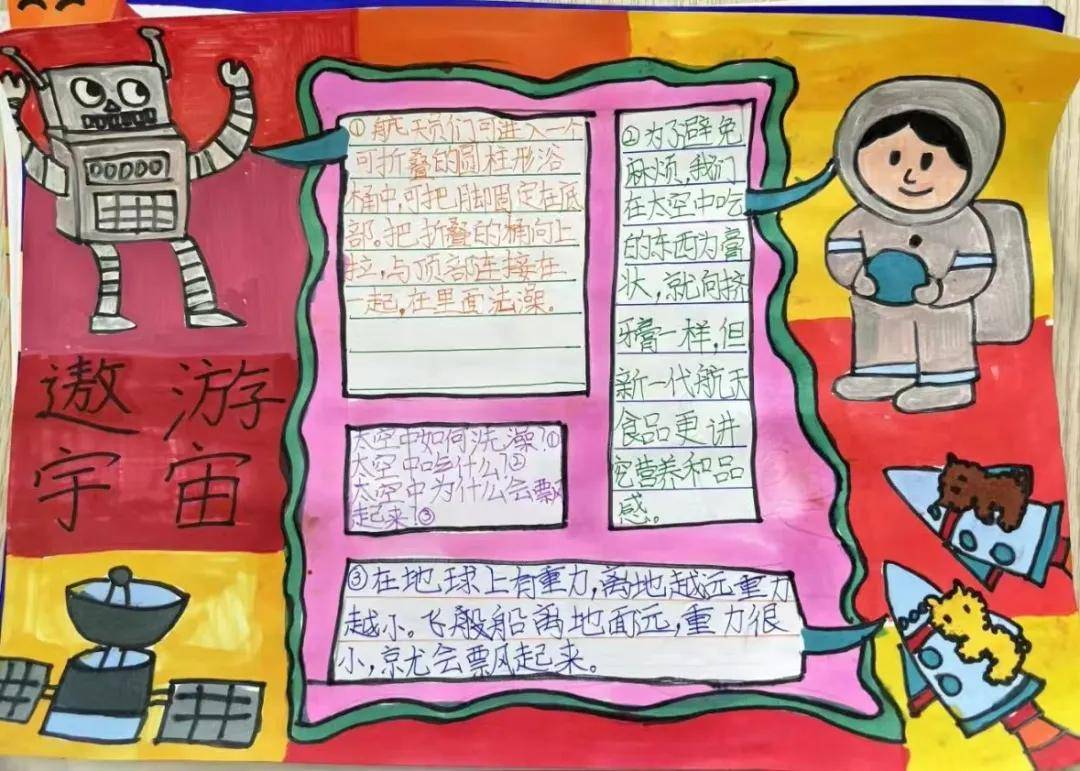 遨游
宇宙
①航天员们可进入一个
可折叠的圆柱形浴
桶中,可把脚固定在底
部。把折叠的桶向上
拉,与顶部连接在
一起,在里面洗澡。
②为了避免
麻烦,我们
在太空中吃
的东西为膏
状,就向挤
牙膏一样,但
新一代航天
食品更讲
究营养和品
感。
太空中如何洗澡?①
太空中吃什么?②
太空中为什么会飘
起来?③
③在地球上有重力,离地越远重力
越小。飞般船离地面远,重力很
小,就会飘起来。